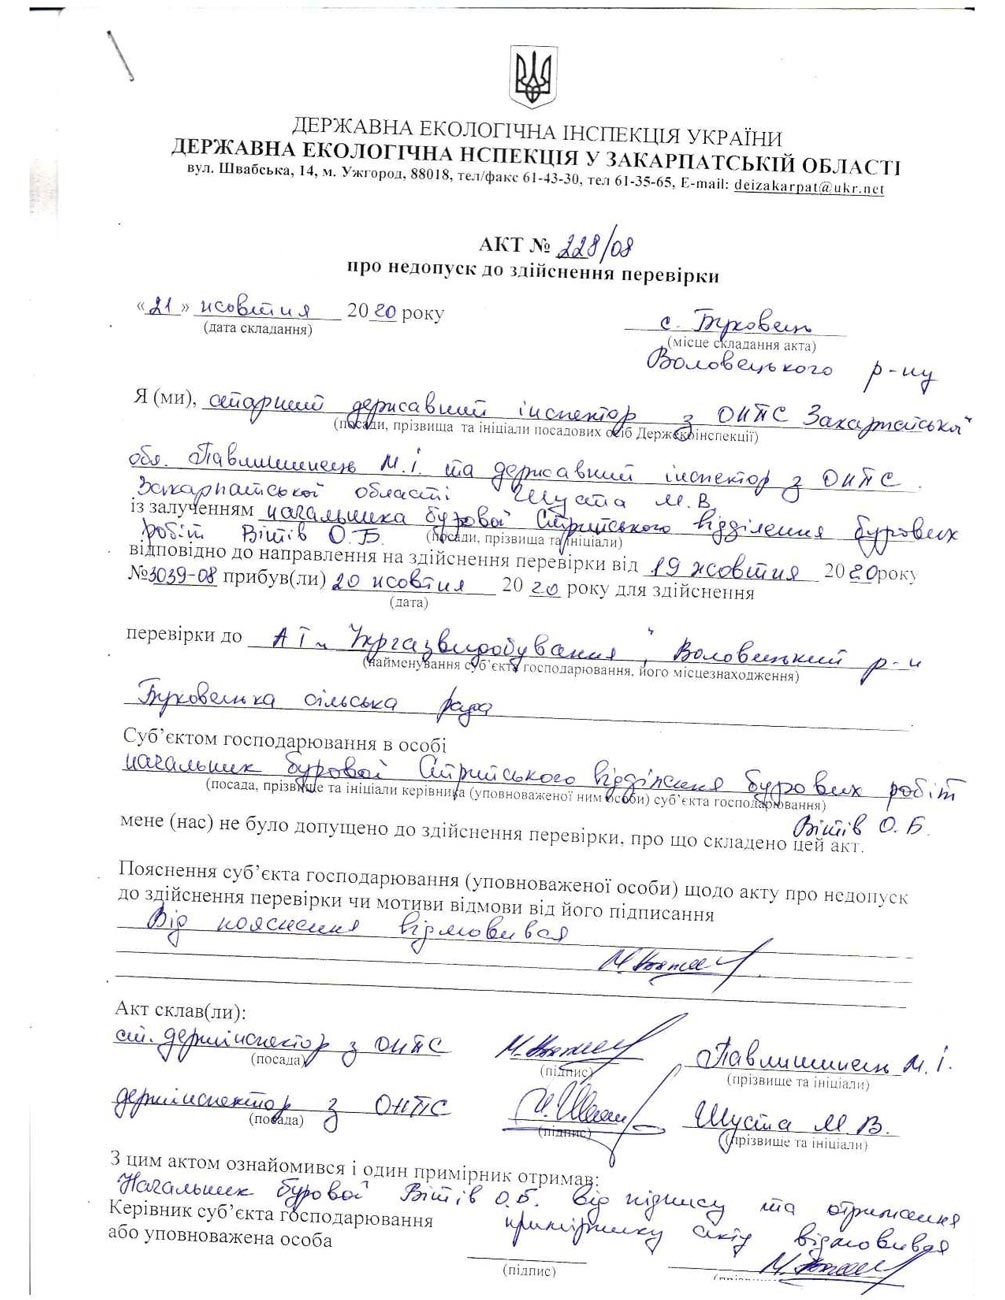 ДЕРЖАВНА ЕКОЛОГІЧНА ІНСПЕКЦІЯ УКРАЇНИ
ДЕРЖАВНА ЕКОЛОГІЧНА НСПЕКЦІЯ У ЗАКАРПАТСЬКІЙ ОБЛАСТІ
вул. Швабська, 14, м. Ужгород, 88018, тел/факс 61-43-30, тел 61-35-65, E-mail: deizakarpat@ukr.net
АКТ № 228/08
про недопуск до здійснення перевірки
«21» жовтня 2020 року
с. Буковець
(дата складання)
(місце складання акта)
Воловецького р-ну
Я (ми), старший державний інспектор з ОНПС Закарпатської
(посади, прізвища та ініціали посадових осіб Держекоінспекції)
обл. Павлишинець М.І. та державний інспектор з ОНПС
Закарпатської області Шуста М.В.
із залученням начальника бурової Стрийського відділення бурових
робіт Вітів О.Б. (посади, прізвища та ініціали)
відповідно до направлення на здійснення перевірки від 19 жовтня 2020 року
№3039-08 прибув(ли) 20 жовтня 2020 року для здійснення
(дата)
перевірки до АТ "Укргазвидобування", Воловецький р-н
(найменування суб’єкта господарювання, його місцезнаходження)
Буковецька сільська рада
Суб’єктом господарювання в особі
начальник бурової Стрийського відділення бурових робіт
(посада, прізвище та ініціали керівника (уповноваженої ним особи) суб’єкта господарювання)
Вітів О.Б.
мене (нас) не було допущено до здійснення перевірки, про що складено цей акт.
Пояснення суб’єкта господарювання (уповноваженої особи) щодо акту про недопуск
до здійснення перевірки чи мотиви відмови від його підписання
Від пояснення відмовився
Акт склав(ли):
ст. держінспектор з ОНПС Павлишинець М.І.
(посада) (підпис) (прізвище та ініціали)
держінспектор з ОНПС Шуста М.В.
(посада) (підпис) (прізвище та ініціали)
З цим актом ознайомився і один примірник отримав:
Начальник бурової Вітів О.Б. від підпису та отримання
примірнику акту відмовився
Керівник суб’єкта господарювання
або уповноважена особа
(підпис)